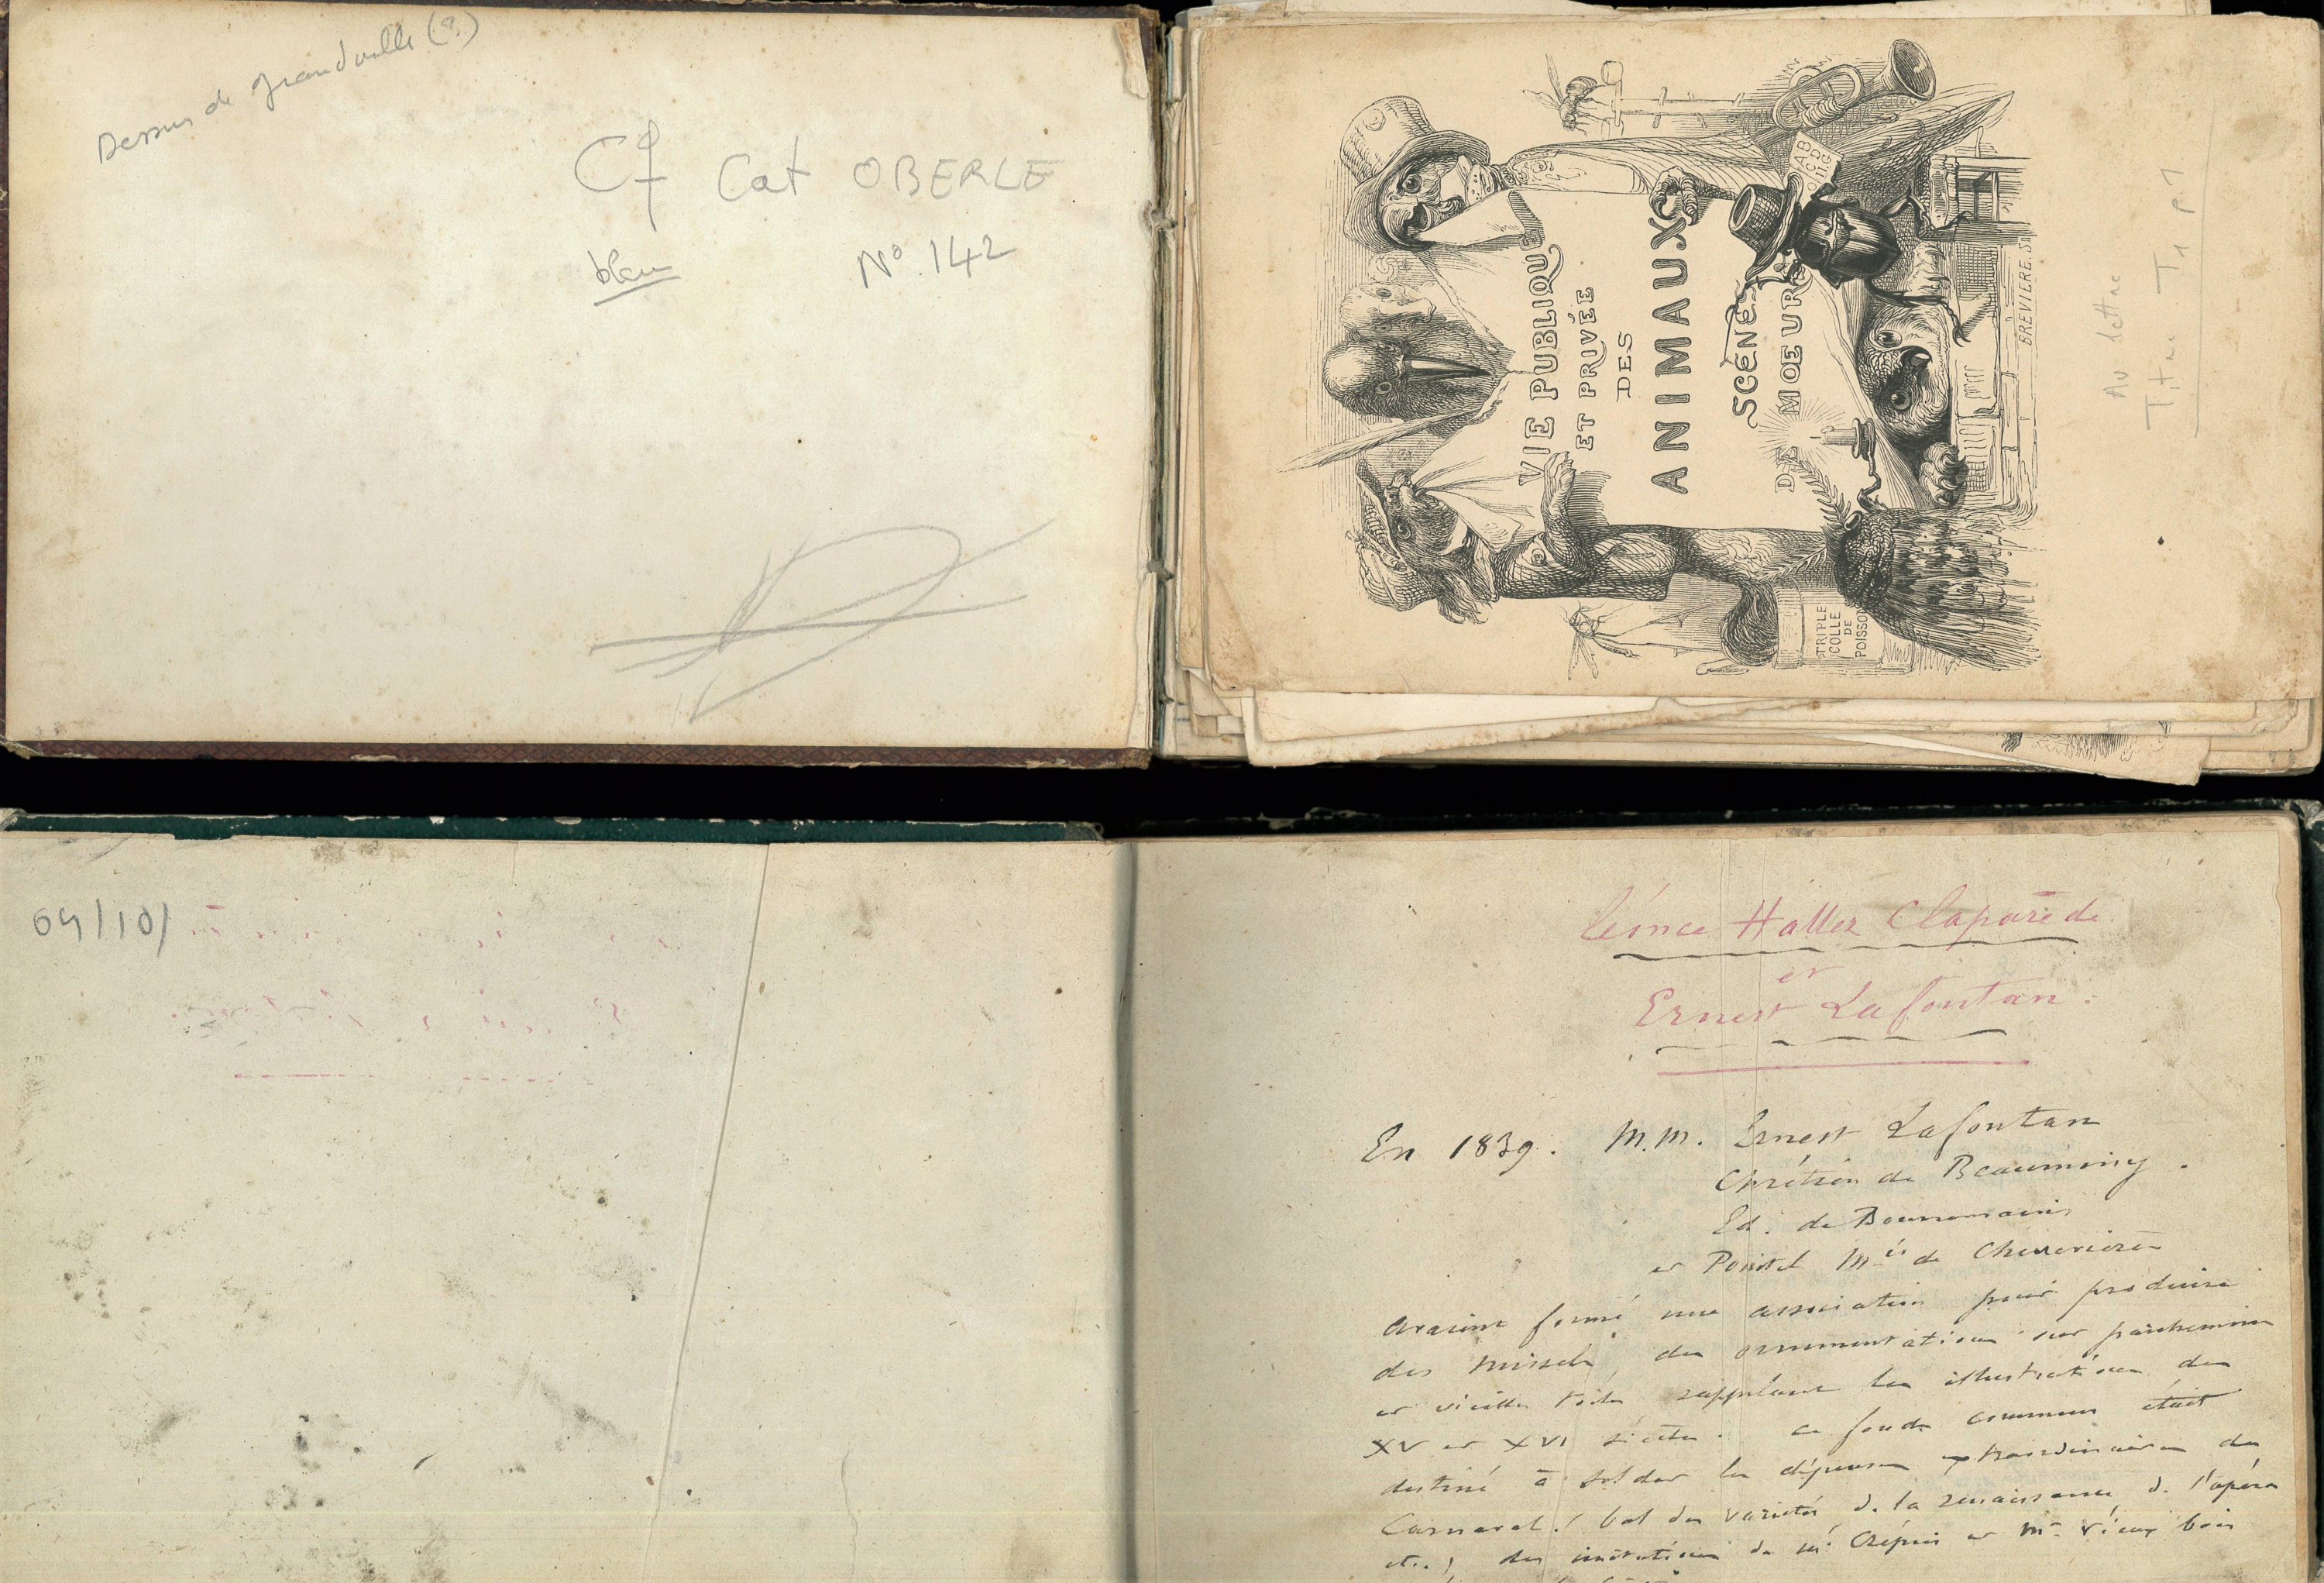 Dessins de grandville (?)
Cf Cat OBERLE
bleu N° 142
VIE PUBLIQUE
ET PRIVÉE
DES
ANIMAUX
SCÈNES
DE MOEURS
AB
CD
TRIPLE
COLLE
DE
POISSO
BREVIERE. S
Av lettre
Titre T1 P1
69/10/
Léonce Haller Claparède
et
Ernest Lafontan.
En 1839. M.M. Ernest Lafontan
Chrétien de Beauminy.
Ed. de Bonnemains
et Pointel Mis de Chenevières
avaient formé une association pour produire
des missels, des ornementations sur parchemin
et vieilles toiles rappelant les illustrations des
XV et XVI siècles. Ce fonds commun était
destiné à solder les dépenses extraordinaires du
Carnaval. (bal des variétés, de la renaissance, de l'opéra
etc.) des imitations de Mr Crépin et Mr Vieux bois